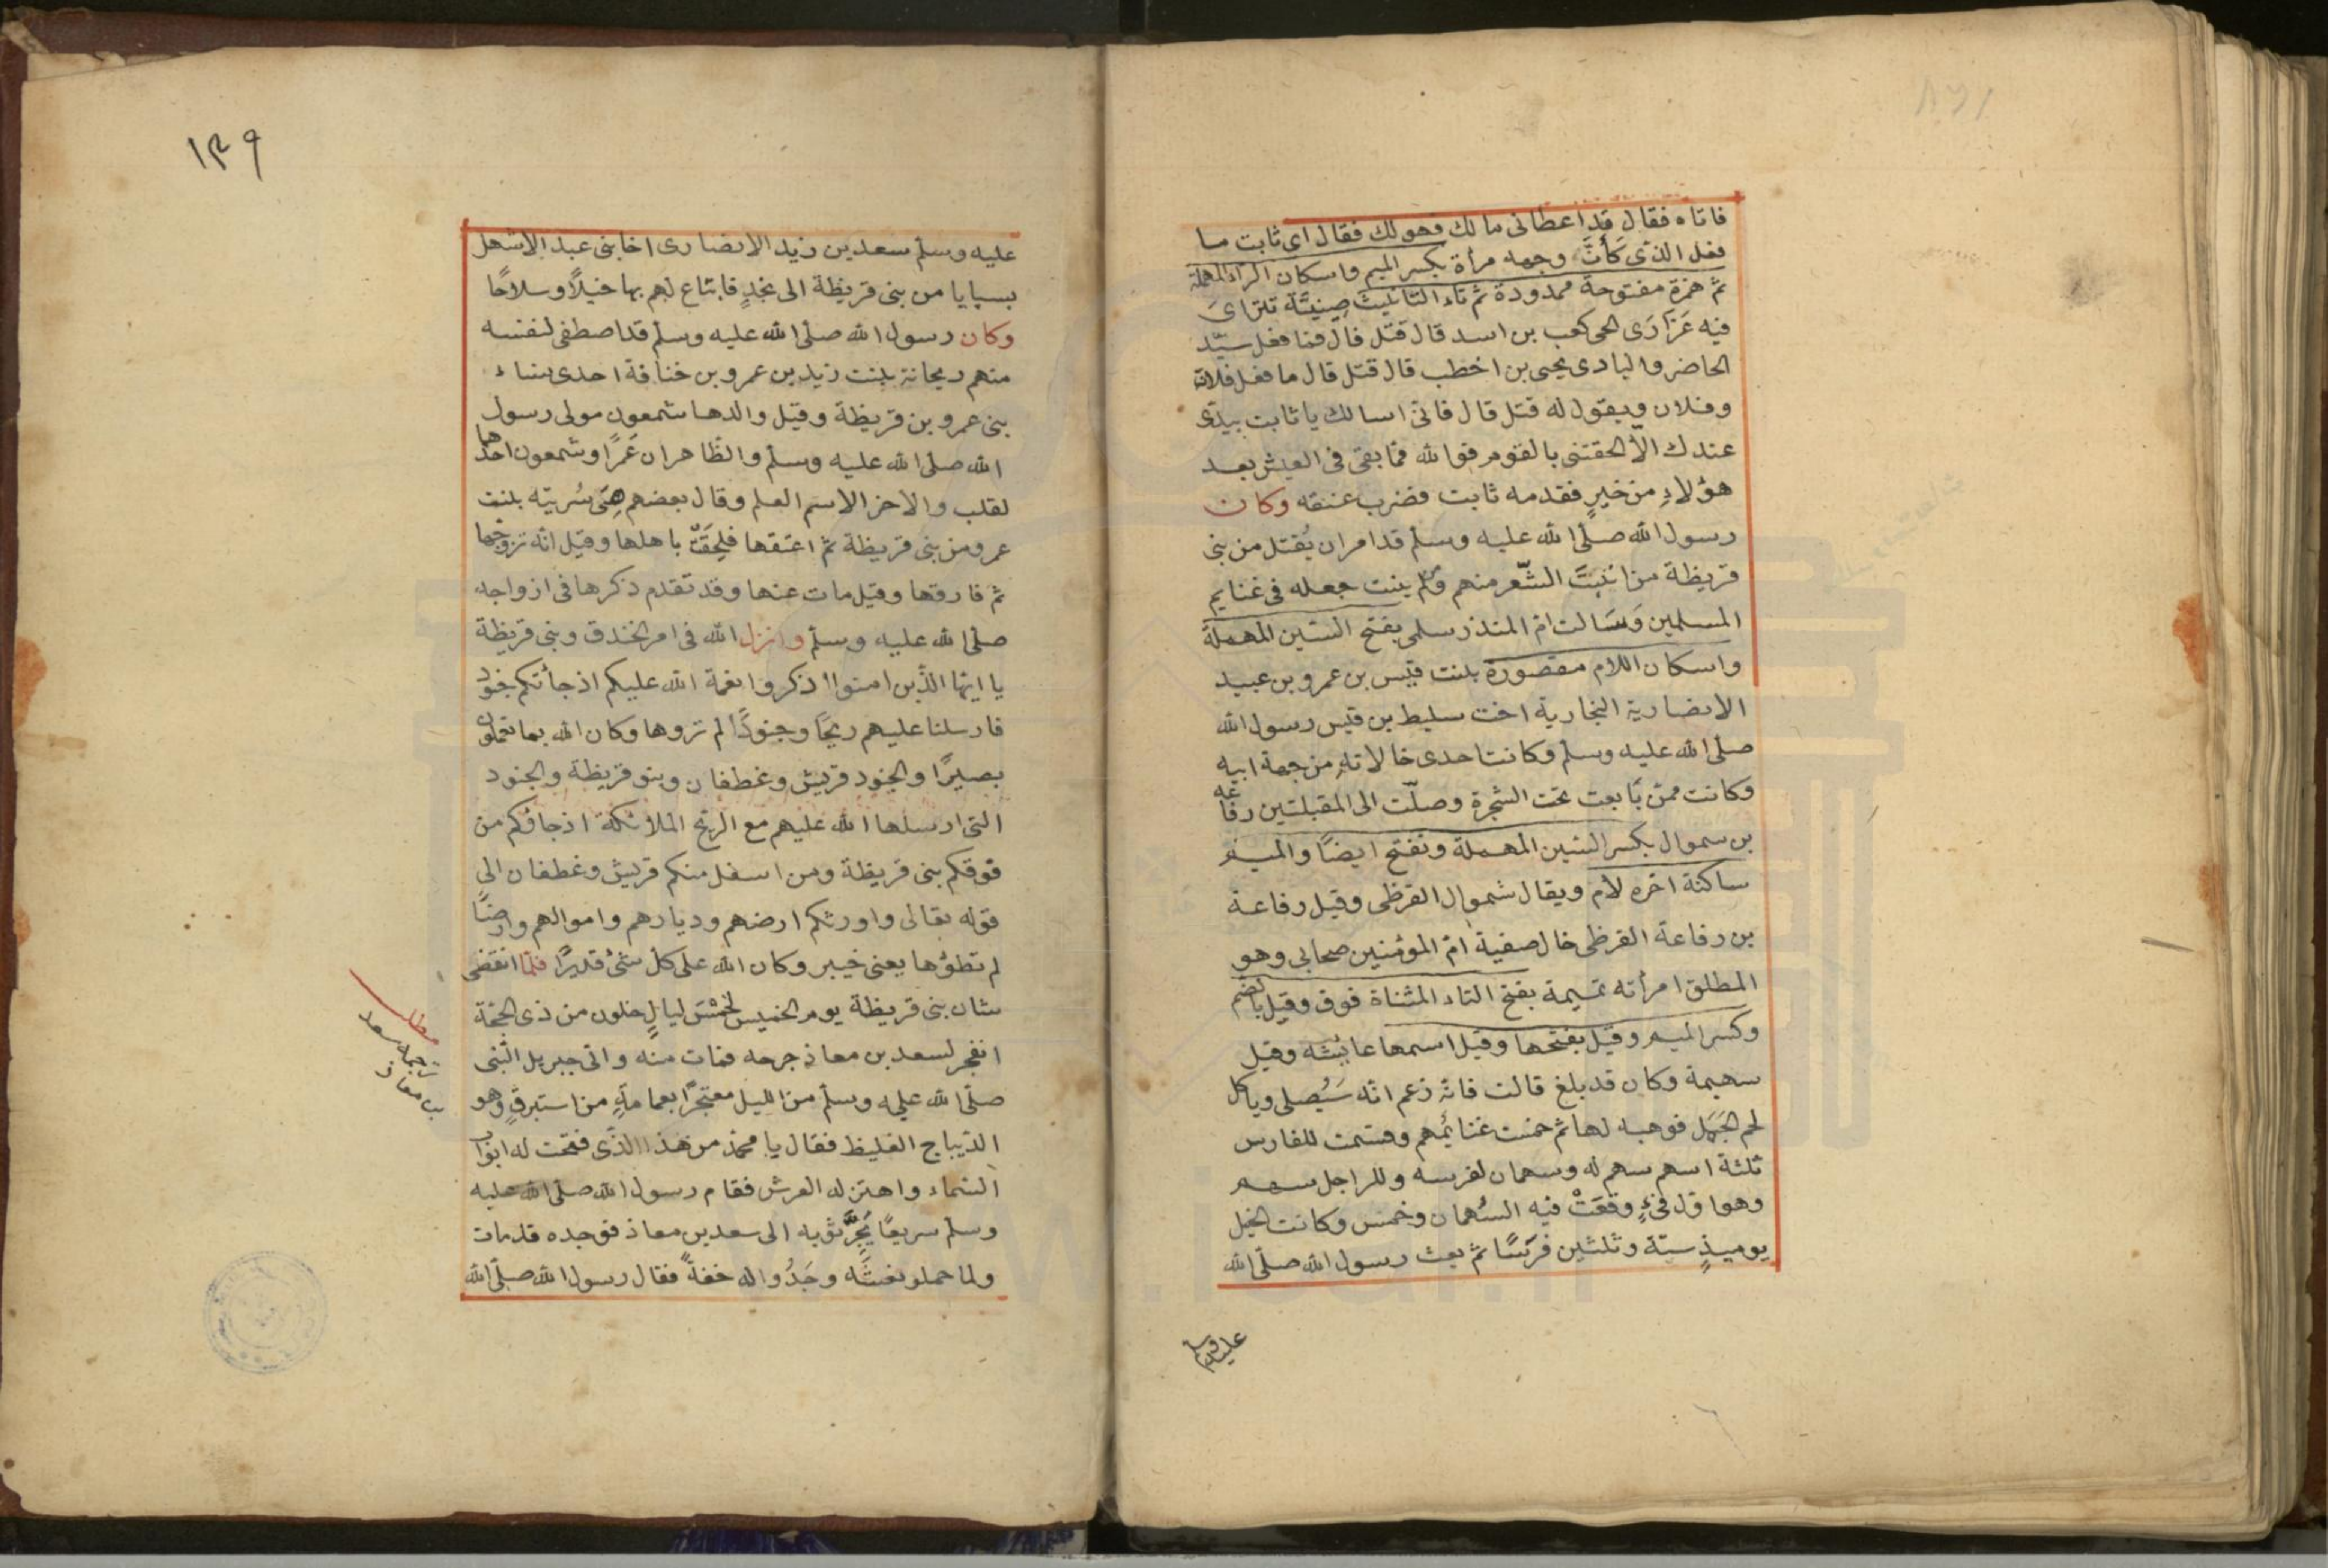 فاتاه فقال قد اعطانى مالك فهو لك فقال اى ثابت ما
فعل الذى كأنّ وجهه مرأة بكسر الميم واسكان الراء المهملة
ثم همزة مفتوحة ممدودة ثم تاء التانيث صِينيَّة تتراىَ
فيه عَزارَى الحى كعب بن اسد قال قتل قال فما فعل سيّد
الحاضر والبادى يحيى بن اخطب قال قتل قال ما فعل فلان
وفلان ويقول له قتل قال فانى اسالك يا ثابت بيدى
عندك الّا الحقتنى بالقوم فوالله فما بقى فى العيش بعد
هؤلاءِ من خيرٍ فقدمه ثابت فضرب عنقه وكان
رسول الله صلّى الله عليه وسلّم قد امر ان يُقتل من بنى
قريظة من انبَتَ الشّعر منهم ومن لم ينبت جعله فى غنايم
المسلمين وَسَالت امّ المنذر سلمى بفتح السّين المهملة
واسكان اللام مقصورة بنت قيس بن عمرو بن عبيد
الانصارية النجارية اخت سليط بن قيس رسول الله
صلّى الله عليه وسلّم وكانت احدى خالاته من جهة ابيه
وكانت ممّن بَابعت تحت الشجرة وصلّت الى المقبلتين رفاعه
بن سموال بكسر السّين المهملة وتفتح ايضًا والميم
ساكنة اخره لام ويقال شموال القرظى وقيل رفاعة
بن رفاعة القرظى خال صفية امّ المؤمنين صحابى وهو
المطلق امرأته تميمة بفتح التاء المثناة فوق وقيل بالضم
وكسر الميم وقيل بفتحها وقيل اسمها عايشه وقيل
سهيمة وكان قد بلغ قالت فانّه زعم انّه سَيُصلى وياكل
لحم الجَمَل فوهبه لها ثم خمست غنائمهم وقسّمت للفارس
ثلثة اسهم سهم له وسهمان لفرسه وللراجل سهم
وهو اوّل فىءٍ وقَعَتْ فيه السُهمان وخمس وكانت الخيل
يوميذٍ ستّة وثلثين فرَسًا ثم بعث رسول الله صلّى الله
عليه وسلم
١٣٩
عليه وسلّم سعد بن زيد الانصارى اخا بنى عبد الاشهل
بسبايا من بنى قريظة الى نجدٍ فابتاع لهم بها خيلًا وسلاحًا
وكان رسول الله صلّى الله عليه وسلّم قد اصطفى لنفسه
منهم ريحانة بنت زيد بن عمرو بن خنافة احدى نساء
بنى عمرو بن قريظة وقيل والدها شمعون مولى رسول
الله صلّى الله عليه وسلّم والظّاهر ان عَمرًا وشمعون احدهما
لقلب والاخر الاسم العلم وقال بعضهم هىَ سُريته بنت
عمرو من بنى قريظة ثم اعتقها فلَحِقَتْ باهلها وقيل انّه تزوّجها
ثم فارقها وقيل مات عنها وقد تقدم ذكرها فى ازواجه
صلّى الله عليه وسلّم وانزل الله فى امر الخندق وبنى قريظة
يا ايّها الذّين امنوا اذكروا نعمة الله عليكم اذ جأتكم جنود
فارسلنا عليهم ريحًا وجنودًا لم تروها وكان الله بما تعملون
بصيرًا والجنود قريش وغطفان وبنو قريظة والجنود
التى ارسلها الله عليهم مع الريح الملائكة اذ جاؤكم من
فوقكم بنى قريظة ومن اسفل منكم قريش وغطفان الى
قوله تعالى واورثكم ارضهم وديارهم واموالهم وارضًا
لم تطؤها يعنى خيبر وكان الله على كلّ شئ قديرًا فلمّا انقضى
شان بنى قريظة يوم الخميس لخمْسَ ليالٍ خلون من ذى الحجّة
انفجر لسعد بن معاذ جرحه فمات منه واتى جبريل النّبى
صلّى الله عليه وسلّم من الليل معتجرًا بعمامةٍ من استبرقٍ وهو
الدّيباج الغليظ فقال يا محمّد من هذا الذّى فتحت له ابواب
السّماء واهتزّ له العرش فقام رسول الله صلّى الله عليه
وسلّم سريعًا يَجرُّ ثوبه الى سعد بن معاذ فوجده قد مات
ولما حملو نعشَه وجَدُوا له خفةً فقال رسول الله صلّى الله
مطلب
ترجمة سعد
بن معاذ